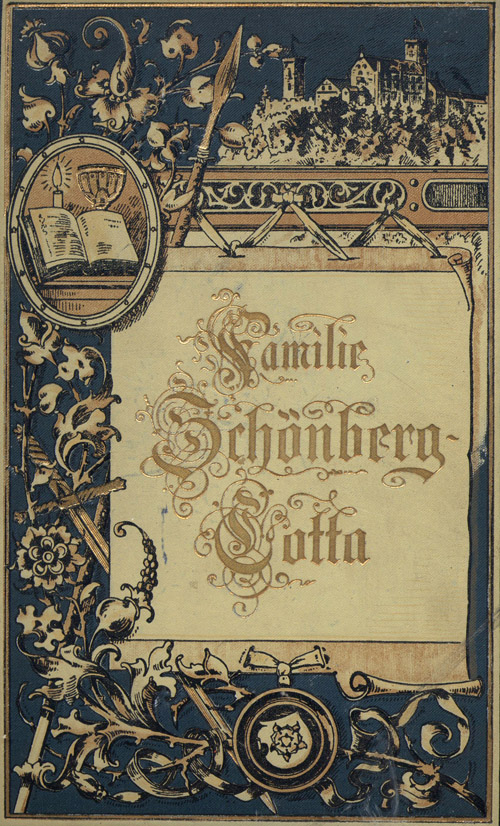 Familie
Schönberg-
Cotta